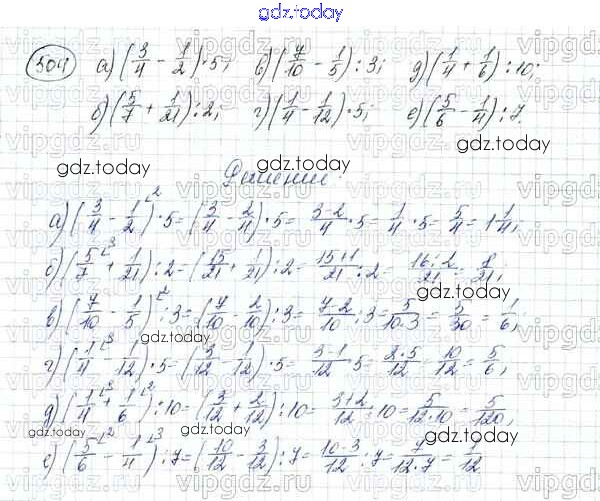 gdz.today
504 а) (3/4 - 1/2)·5; в) (7/10 - 1/5):3; д) (1/4 + 1/6):10;
б) (5/7 + 1/21):2; г) (1/4 - 1/12)·5; е) (5/6 - 1/4):7.
gdz.today gdz.today gdz.today
Решение:
а) (3/4 - 1/2^2)·5 = (3/4 - 2/4)·5 = 3-2/4·5 = 1/4·5 = 5/4 = 1 1/4;
б) (5/7^3 + 1/21):2 = (15/21 + 1/21):2 = 15+1/21:2 = 16:2/21 = 8/21;
gdz.today
в) (7/10 - 1/5^2):3 = (7/10 - 2/10):3 = 7-2/10:3 = 5/10·3 = 5/30 = 1/6;
gdz.today
г) (1/4^3 - 1/12)·5 = (3/12 - 1/12)·5 = 3-1/12·5 = 2·5/12 = 10/12 = 5/6;
д) (1/4^3 + 1/6^2):10 = (3/12 + 2/12):10 = 3+2/12:10 = 5/12·10 = 5/120;
gdz.today gdz.today
е) (5/6^2 - 1/4^3):7 = (10/12 - 3/12):7 = 10-3/12:7 = 7/12·7 = 1/12